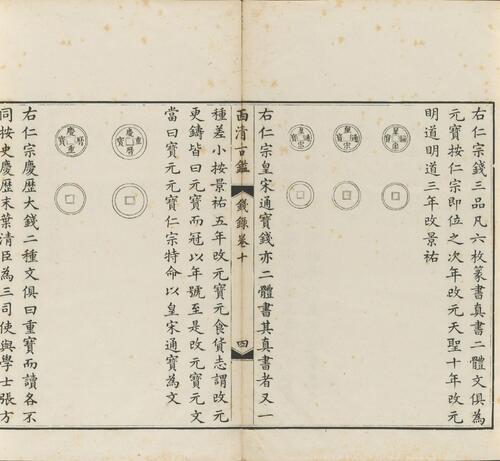 右仁宗錢三品凡六枚篆書真書二體文俱為
元寶按仁宗即位之次年改元天聖十年改元
明道明道三年改景祐
皇宋通寶
皇宋通寶
皇宋通寶
右仁宗皇宋通寶錢亦二體書其真書者又一
西清古鑑 錢錄卷十 四
種差小按景祐五年改元寶元食貨志謂改元
更鑄皆曰元寶而冠以年號至是改元寶元文
當曰寶元元寶仁宗特命以皇宋通寶為文
慶曆重寶
慶曆重寶
右仁宗慶歷大錢二種文俱曰重寶而讀各不
同按史慶歷末葉清臣為三司使與學士張方